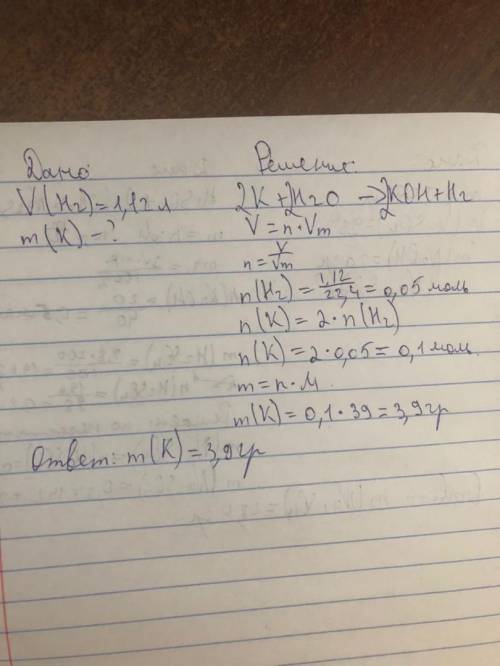 Дано
Решение:
V(H₂)=1,12 л
m(K)-?
2K+2H₂O → 2KOH+H₂
V=n·Vm
n=V/Vm
n(H₂)=1,12/22,4=0,05 моль
n(K)=2·n(H₂)
n(K)=2·0,05=0,1 моль
m=n·M
m(K)=0,1·39=3,9 гр
Ответ: m(K)=3,9 гр